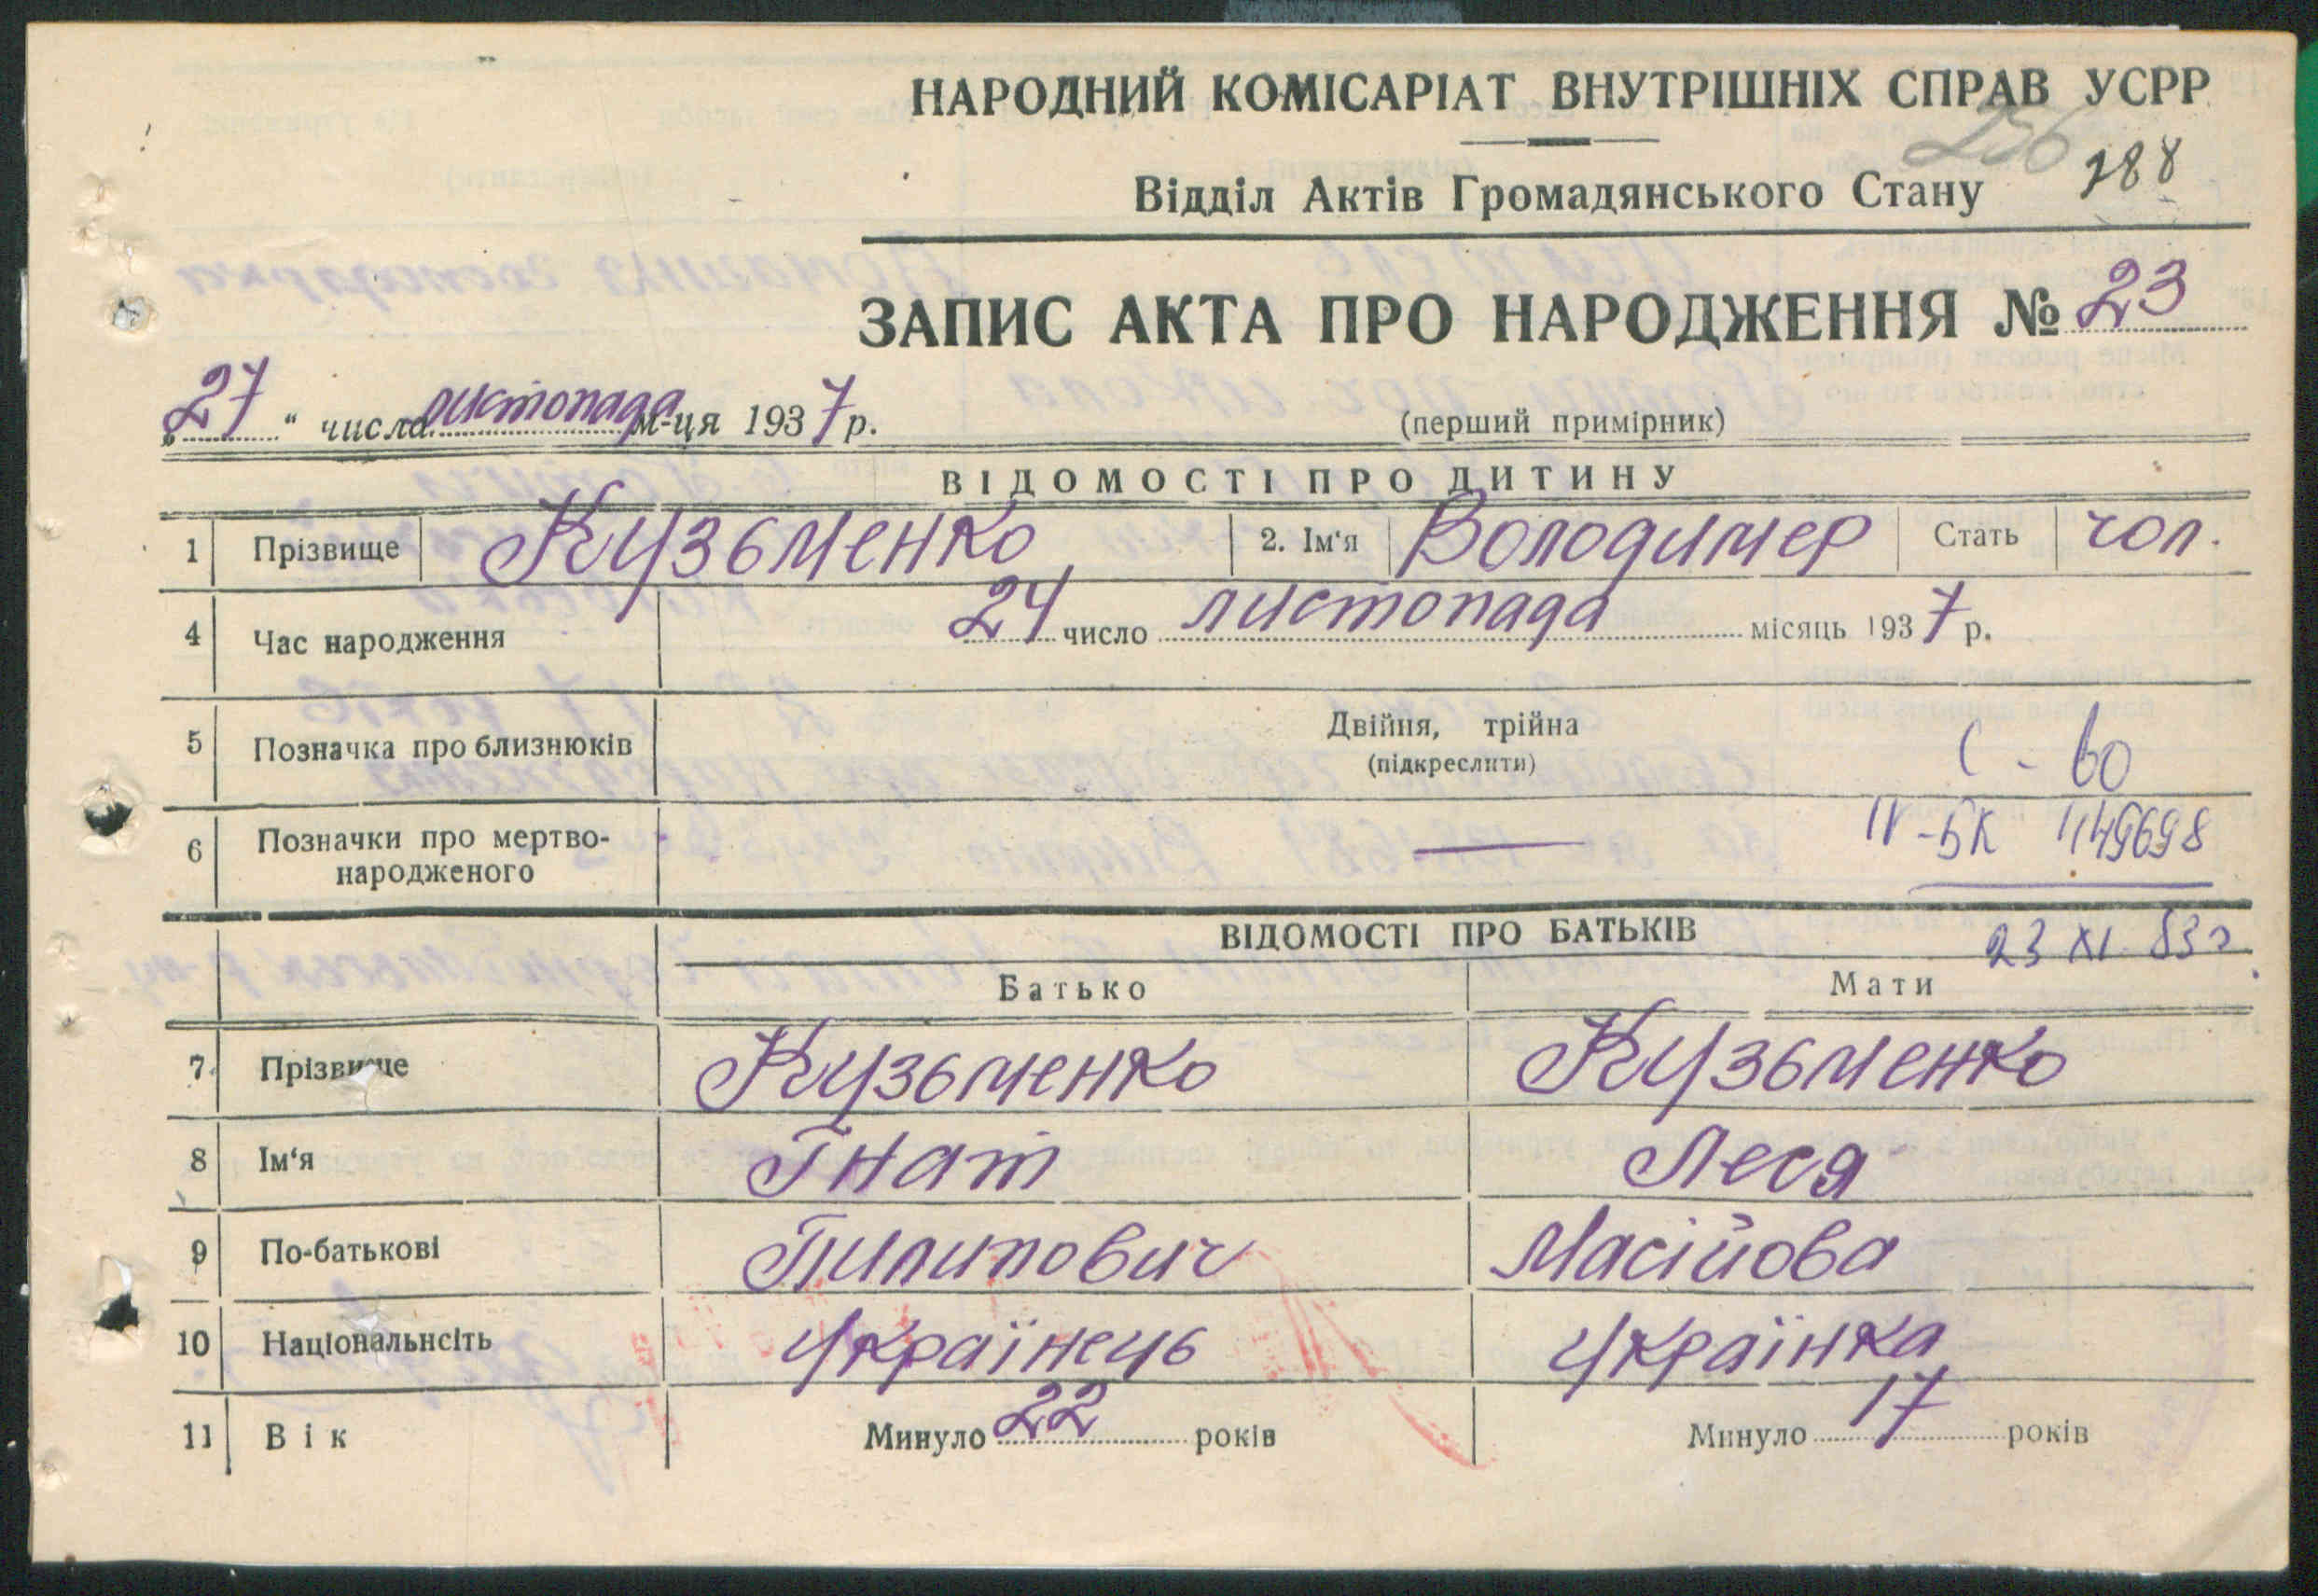 НАРОДНИЙ КОМІСАРІАТ ВНУТРІШНІХ СПРАВ УСРР
256
Відділ Актів Громадянського Стану 288
ЗАПИС АКТА ПРО НАРОДЖЕННЯ № 23
„27“ числа листопада м-ця 1937 р. (перший примірник)
ВІДОМОСТІ ПРО ДИТИНУ
1 Прізвище Кузьменко 2. Ім‘я Володимер Стать чол.
4 Час народження 24 число листопада місяць 1937 р.
5 Позначка про близнюків Двійня, трійна
(підкреслити)
6 Позначки про мертво-
народженого — IV-БК 1149698
ВІДОМОСТІ ПРО БАТЬКІВ
23 XI 83г
Батько Мати
7. Прізвище Кузьменко Кузьменко
8 Ім‘я Гнат Леся
9 По-батькові Пилипович Масійова
10 Національнсіть Українець Українка
11 Вік Минуло 22 років Минуло 17 років